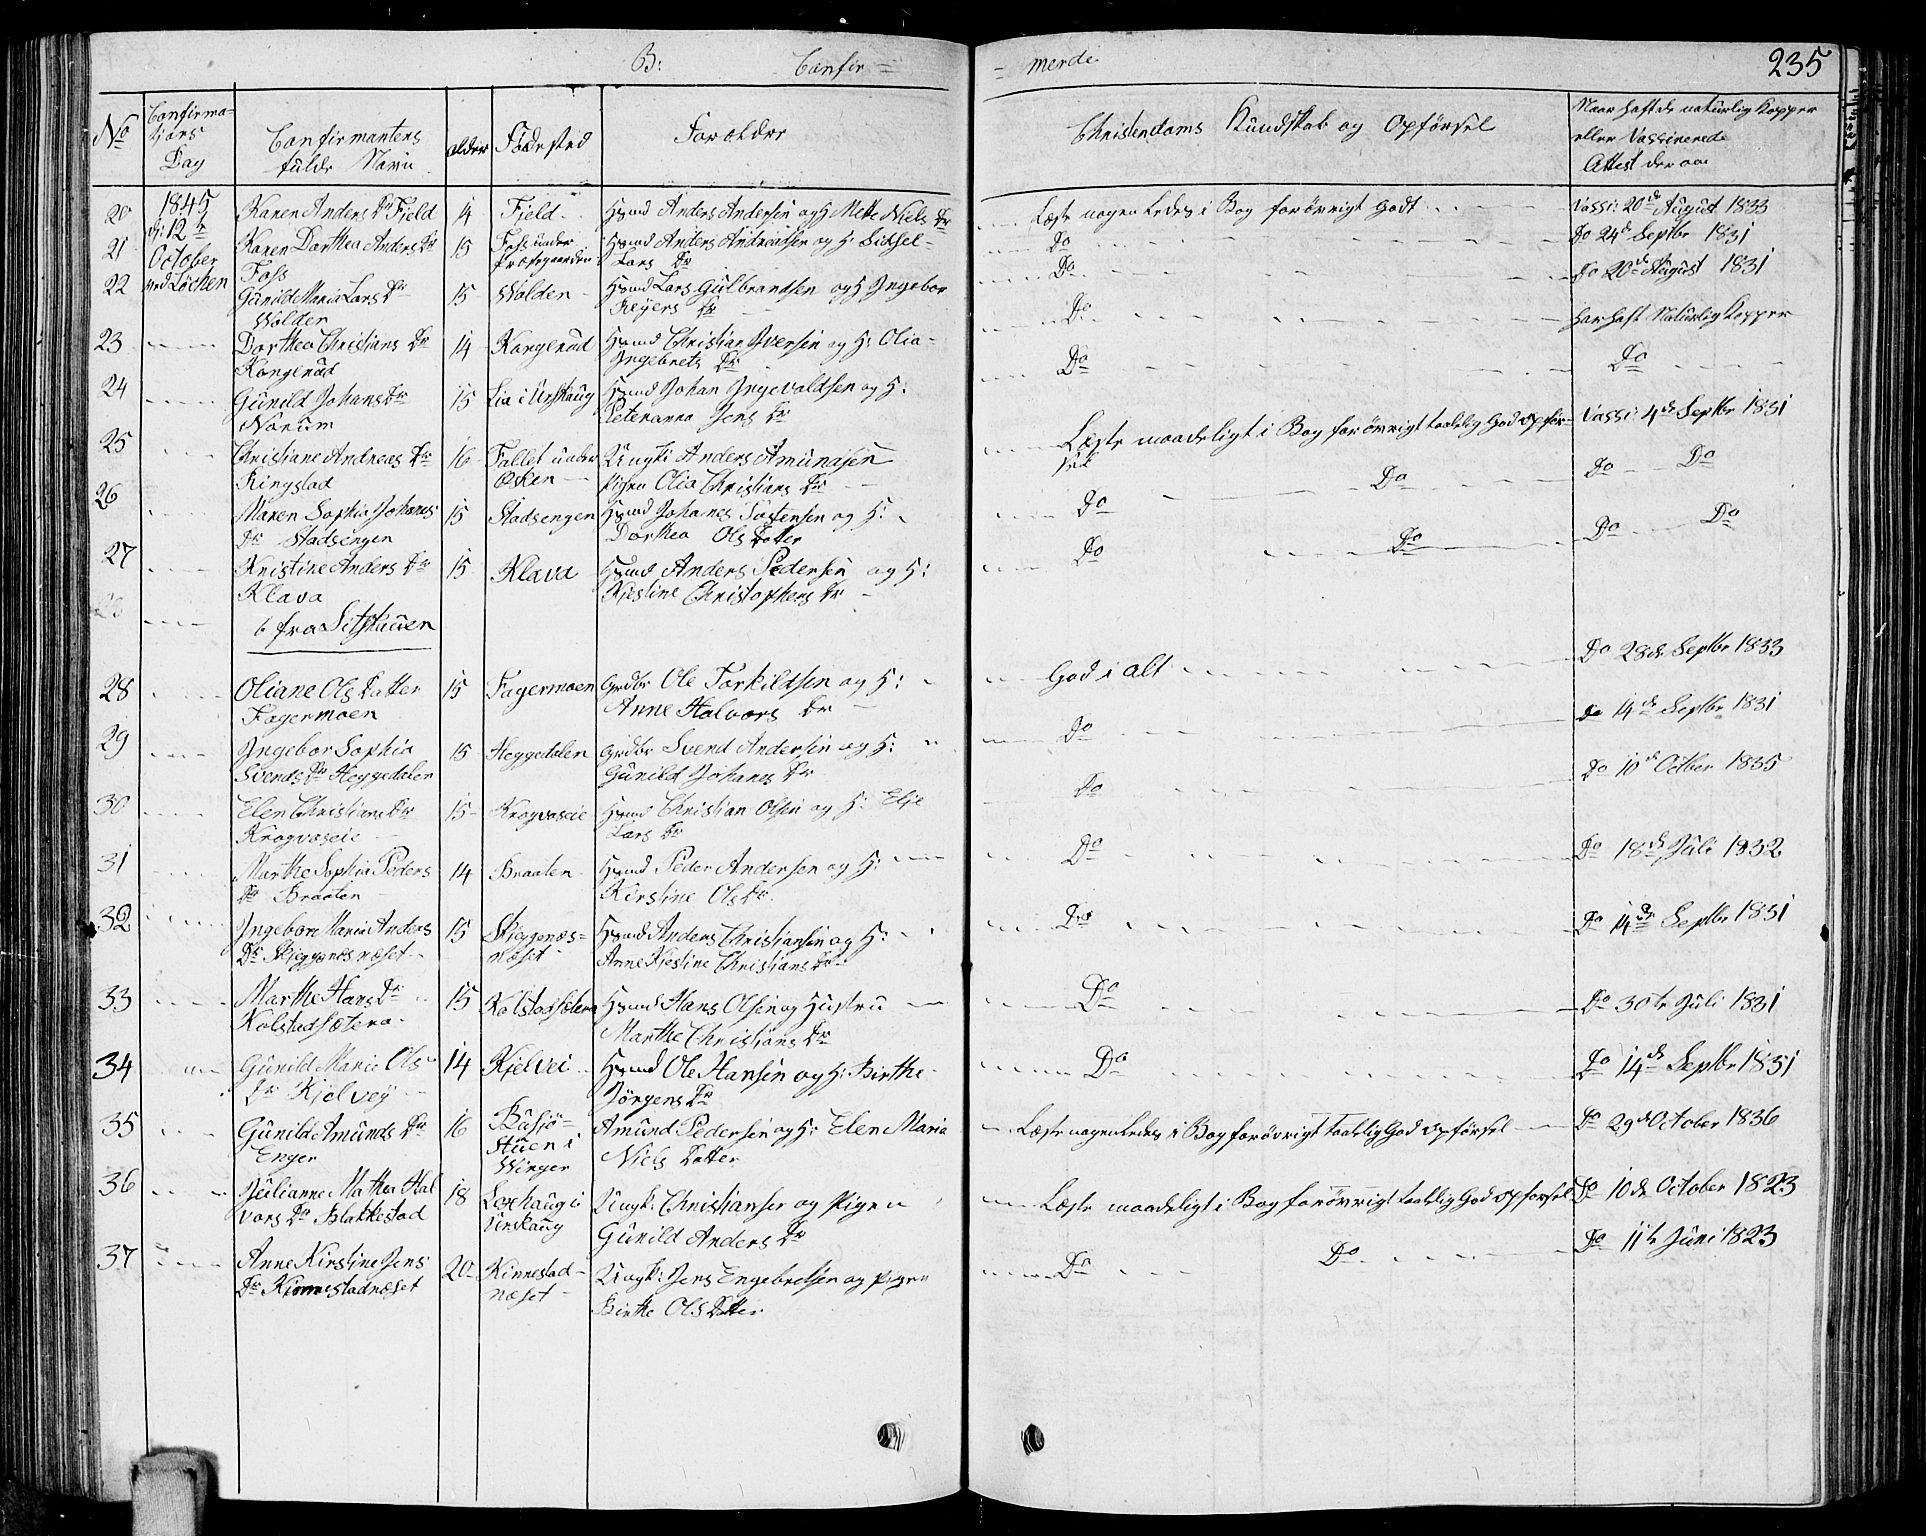 B: Confir =
= merde
235
No
Confirma-
tions
Dag
Confirmantens
fulde Navn
Alder
Fødested
Forældre
Christendoms Kundskab og Opførsel
Naar hafde naturlig Kopper
eller Vassinerede
Attest derom
20 1845 Karen Anders Dr Field 14 Field Hsmd Anders Andersen og H: Mette Niels Dr Læste nogenledes i Bog forøvrigt Godt Vassi: 20de August 1833
d: 12te
21 October Karen Dorthea Anders Dr 15 Foss under Hsmd Anders Andreassen og H: Sidsel- Do Do 24de Septbr 1831
Foss Præstegaarden Lars Dr
22 ved Løchen Gunild Maria Lars Dr 15 Wolden Hsmd Lars Gulbrandsen og H: Ingebor Do Do 20de August 1831
Wolden Reyers Dr
23 Dorthea Christians Dr 14 Kongerud Hsmd Christian Iversen og H: Olia- Do har haft Naturlig Kopper
Kongerud Ingebrets Dr
24 Gunild Johans Dr 15 Lia i Urskaug Hsmd Johan Ingevaldsen og H: Do Do
Norum Peteranna Jens Dr
25 Christiane Andreas Dr 16 Fallet under Ungk: Anders Amundsen Læste maadeligt i Bog forøvrigt taalelig God opfør- Vassi: 4de Septbr 1831
Ringstad Asken Pigen Olia Christians Dr sel
26 Maren Sophia Johanes 15 Stadsengen Hsmd Johanes Tostensen og H: Do Do Do Do
Dr Stadsengen Dorthea Ols Datter
27 Kristine Anders Dr 15 Klava Hsmd Anders Pedersen og H: Do Do Do Do
Klava Kjestine Christophers Dr
6 fra Sitskauen
28 Oliane Ols Datter 15 Fagermoen Grdbr Ole Torkildsen og H: God i alt Do 28de Septbr 1833
Fagermoen Anne Halvors Dr
29 Ingebor Sophia 15 Heggedalen Grdbr Svend Andersen og H: Do Do 14de Septbr 1831
Svends Dr Heggedalen Gunild Johanes Dr
30 Elen Christians Dr 15 Krogvaseie Hsmd Christian Olsen og H: Elje Do Do 10de Octber 1835
Krogvaseie Lars Dr
31 Marthe Sophia Peders 14 Braaten Hsmd Peder Andersen og H: Do Do 18de Juli 1832
Dr Braaten Kirstine Ols Dr
32 Ingebor Maria Anders 15 Skieggenes- Hsmd Anders Christiansen og H: Do Do 14de Septbr 1831
Dr Skieggenes næset næset Anne Kjestine Christians Dr
33 Marthe Hans Dr 15 Kolstadsætera Hsmd Hans Olsen og Hustru Do Do 30te Juli 1831
Kolstadsætera Marthe Christians Dr
34 Gunild Marie Ols 14 Kjelvei Hsmd Ole Hansen og H: Birthe Do Do 14de Septbr 1831
Dr Kjelvey Jørgens Dr
35 Gunild Amunds Dr 16 Busjø- Amund Pedersen og H: Elen Maria Læste nogenledes i Bog forøvrigt taalelig God opførsel Do 29de October 1836
Enger stuen i Niels Datter
Winger
36 Julianne Mathea Hal 18 Loxhaug i Ungk: Christiansen og Pigen Læste maadeligt i Bog forøvrigt taalelig God opførsel Do 10de October 1823
vors Dr Blakkestad Urskaug Gunild Anders Dr
37 Anne Kirstine Jens 20 Kinnestad- Ungk: Jens Engebretsen og Pigen Do Do Do 11te Juni 1823
Dr Kinnestadnæset næset Birthe Ols Datter